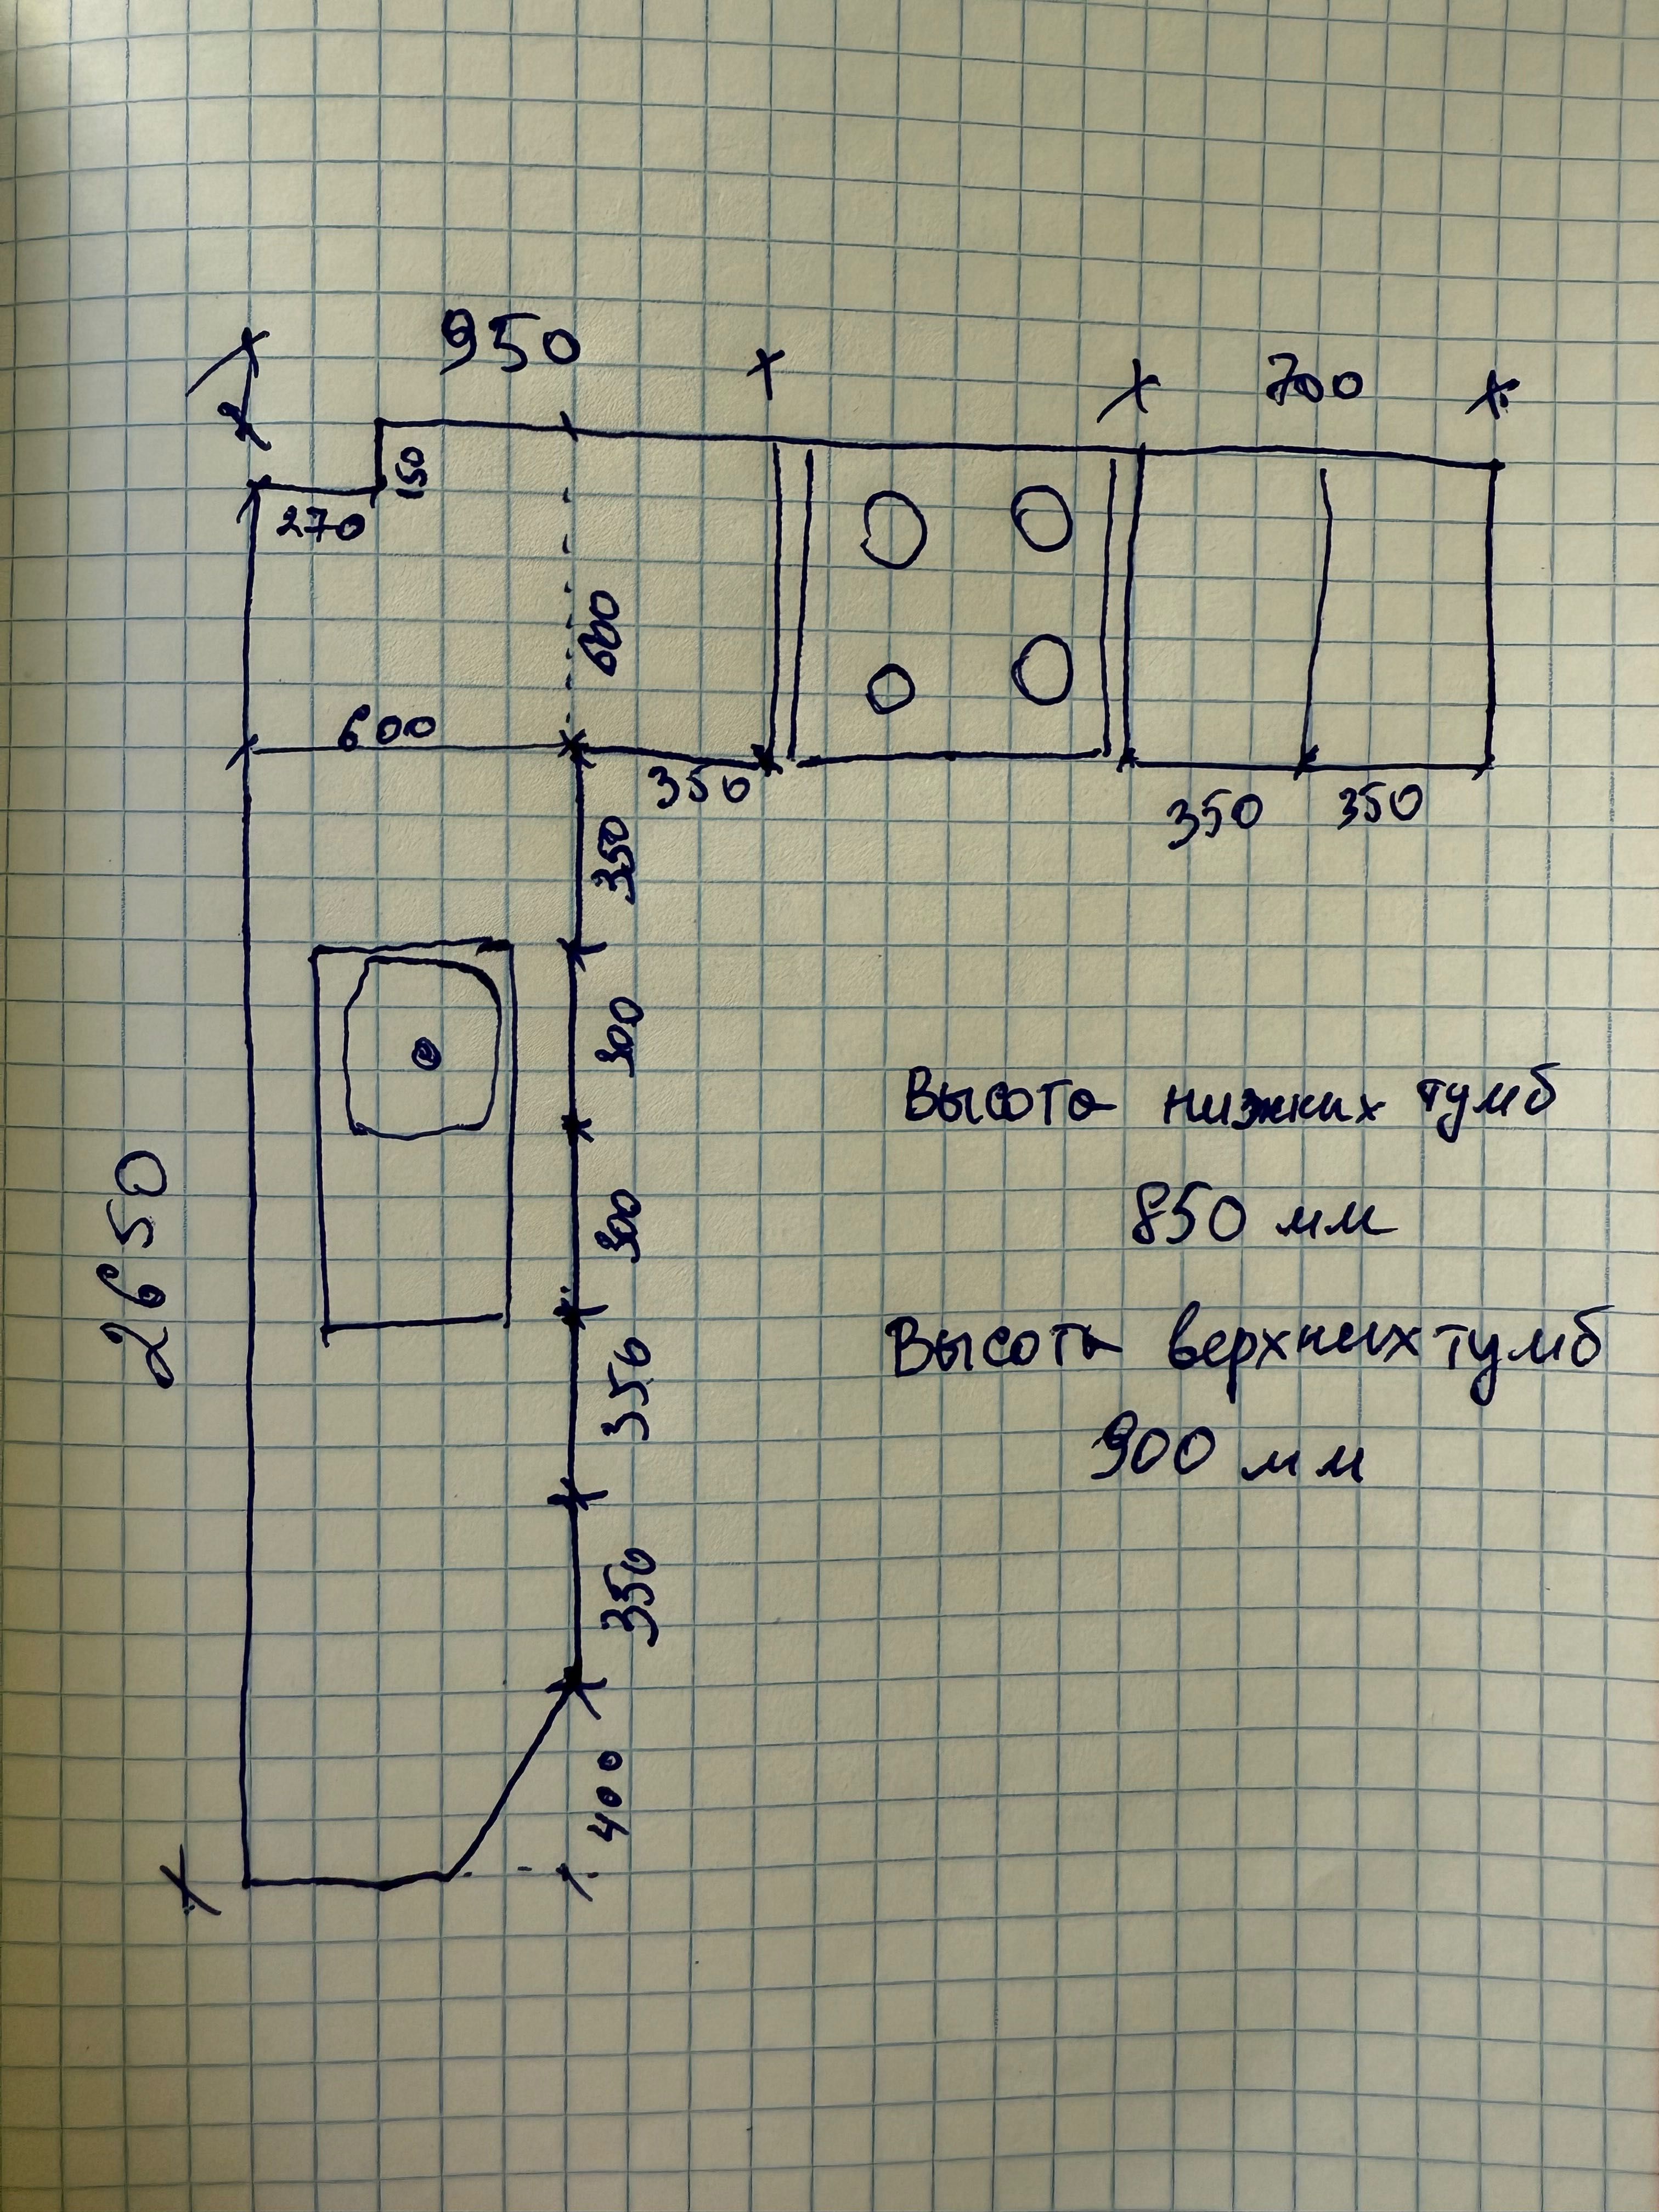 950
700
150
270
600
600
350
350
350
350
300
Высота нижних тумб
2650
300
850 мм
350
Высота верхних тумб
900 мм
350
400